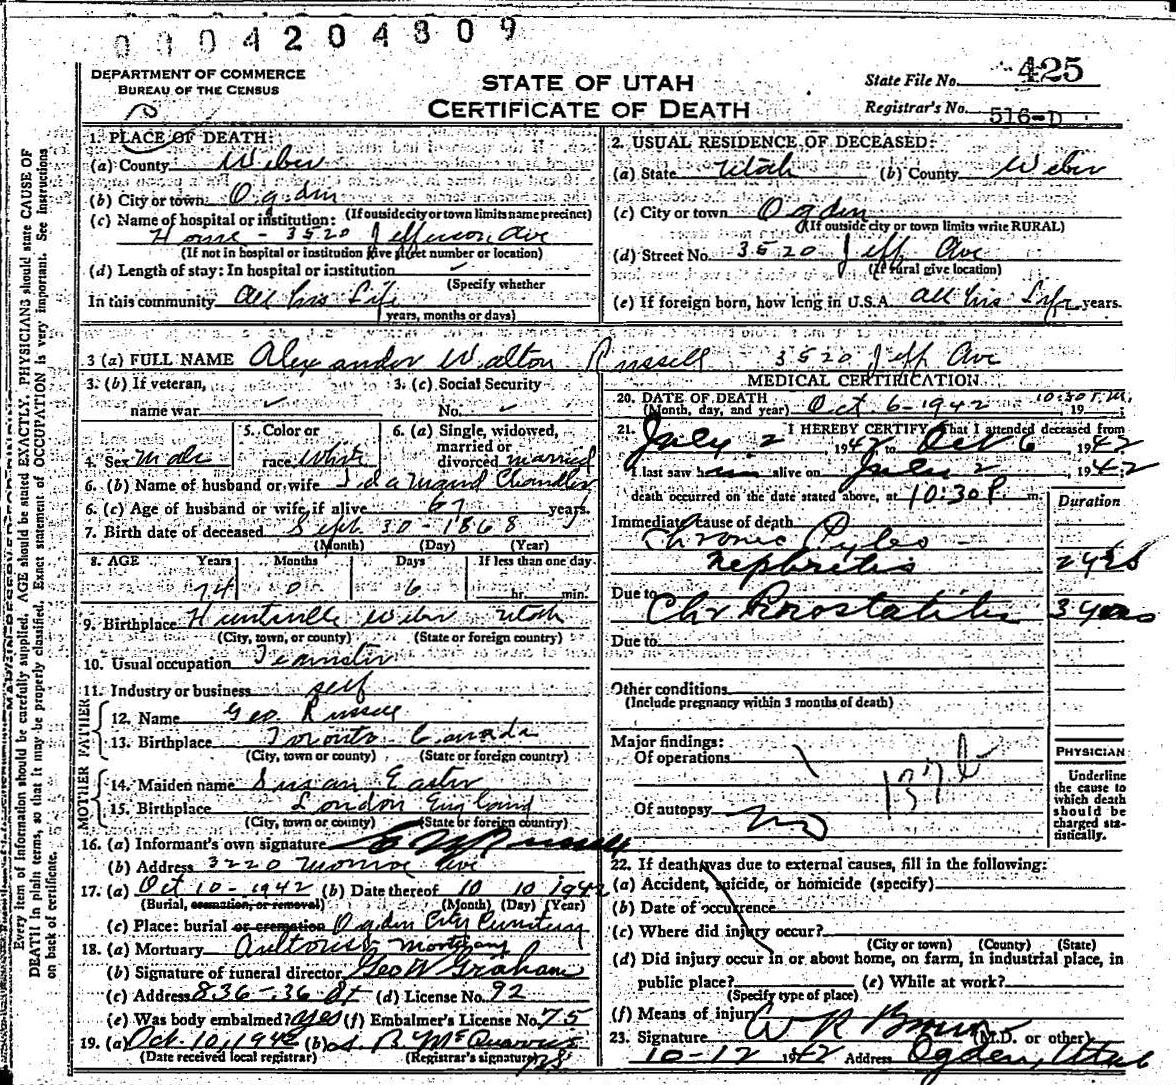 0004204809
DEPARTMENT OF COMMERCE
BUREAU OF THE CENSUS
STATE OF UTAH
CERTIFICATE OF DEATH
State File No. 425
Registrar's No. 516-D
Every item of information should be carefully supplied. AGE should be stated EXACTLY. PHYSICIANS should state CAUSE OF
DEATH in plain terms, so that it may be properly classified. Exact statement of OCCUPATION is very important. See Instructions
on back of certificate.
1. PLACE OF DEATH:
(a) County Weber
(b) City or town Ogden
(If outside city or town limits name precinct)
(c) Name of hospital or institution:
Home - 3520 Jefferson Ave
(If not in hospital or institution give street number or location)
(d) Length of stay: In hospital or institution ✓
(Specify whether
In this community All his Life
years, months or days)
2. USUAL RESIDENCE OF DECEASED:
(a) State Utah (b) County Weber
(c) City or town Ogden
(If outside city or town limits write RURAL)
(d) Street No. 3520 Jeff Ave
(If rural give location)
(e) If foreign born, how long in U.S.A. All his Life years.
3 (a) FULL NAME Alexander Walton Russell 3520 Jeff Ave
3. (b) If veteran, name war ✓
3. (c) Social Security No. ✓
4. Sex Male
5. Color or race White
6. (a) Single, widowed, married or divorced married
6. (b) Name of husband or wife Ida Maud Chandler
6. (c) Age of husband or wife, if alive 67 years.
7. Birth date of deceased Sept 30 - 1868
(Month) (Day) (Year)
8. AGE Years Months Days If less than one day
74 0 6 hr. min.
9. Birthplace Huntsville Weber Utah
(City, town, or county) (State or foreign country)
10. Usual occupation Teamster
11. Industry or business self
FATHER
12. Name Geo. Russell
13. Birthplace Toronto Canada
(City, town or county) (State or foreign country)
MOTHER
14. Maiden name Susan Easter
15. Birthplace London England
(City, town or county) (State or foreign country)
16. (a) Informant's own signature Russell
(b) Address 3220 Monroe Ave
17. (a) Oct 10 - 1942 (b) Date thereof 10 10 1942
(Burial, cremation, or removal) (Month) (Day) (Year)
(c) Place: burial or cremation Ogden City Cemetery
18. (a) Mortuary Mortuary
(b) Signature of funeral director Geo W Graham
(c) Address 836 - 36 St (d) License No. 92
(e) Was body embalmed? yes (f) Embalmer's License No. 75
19. (a) Oct. 10, 1942 (b)
(Date received local registrar) (Registrar's signature)
MEDICAL CERTIFICATION
20. DATE OF DEATH
(Month, day, and year) Oct. 6 - 1942 10:30 P.M. 19
21. I HEREBY CERTIFY, That I attended deceased from
July 2 1942 to Oct 6 1942
I last saw him alive on July 2, 1942
death occurred on the date stated above, at 10:30 P. m.
Duration
Immediate cause of death
Chronic Pyelo -
Nephritis 2 yrs
Due to Chr Prostatitis 3 years
Due to
Other conditions
(Include pregnancy within 3 months of death)
Major findings:
Of operations
137b
Of autopsy no
PHYSICIAN
Underline
the cause to
which death
should be
charged sta-
tistically.
22. If death was due to external causes, fill in the following:
(a) Accident, suicide, or homicide (specify)
(b) Date of occurrence
(c) Where did injury occur?
(City or town) (County) (State)
(d) Did injury occur in or about home, on farm, in industrial place, in
public place? (e) While at work?
(Specify type of place)
(f) Means of injury
23. Signature W R Brown (M.D. or other)
10-12 1942 Address Ogden, Utah